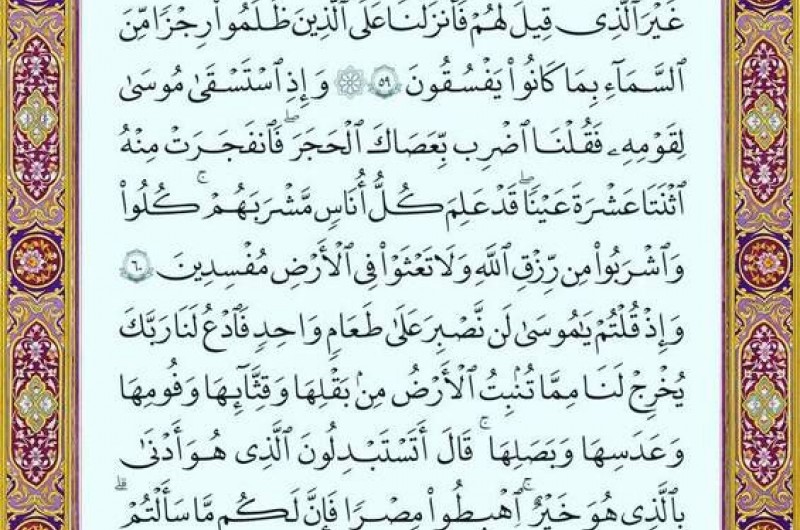 غَيْرَ ٱلَّذِى قِيلَ لَهُمْ فَأَنزَلْنَا عَلَى ٱلَّذِينَ ظَلَمُوا۟ رِجْزًا مِّنَ
ٱلسَّمَآءِ بِمَا كَانُوا۟ يَفْسُقُونَ ٥٩ ۞ وَإِذِ ٱسْتَسْقَىٰ مُوسَىٰ
لِقَوْمِهِۦ فَقُلْنَا ٱضْرِب بِّعَصَاكَ ٱلْحَجَرَ ۖ فَٱنفَجَرَتْ مِنْهُ
ٱثْنَتَا عَشْرَةَ عَيْنًا ۖ قَدْ عَلِمَ كُلُّ أُنَاسٍ مَّشْرَبَهُمْ ۚ كُلُوا۟
وَٱشْرَبُوا۟ مِن رِّزْقِ ٱللَّهِ وَلَا تَعْثَوْا۟ فِى ٱلْأَرْضِ مُفْسِدِينَ ٦٠
وَإِذْ قُلْتُمْ يَٰمُوسَىٰ لَن نَّصْبِرَ عَلَىٰ طَعَامٍ وَٰحِدٍ فَٱدْعُ لَنَا رَبَّكَ
يُخْرِجْ لَنَا مِمَّا تُنۢبِتُ ٱلْأَرْضُ مِنۢ بَقْلِهَا وَقِثَّآئِهَا وَفُومِهَا
وَعَدَسِهَا وَبَصَلِهَا ۖ قَالَ أَتَسْتَبْدِلُونَ ٱلَّذِى هُوَ أَدْنَىٰ
بِٱلَّذِى هُوَ خَيْرٌ ۚ ٱهْبِطُوا۟ مِصْرًا فَإِنَّ لَكُم مَّا سَأَلْتُمْ ۗ